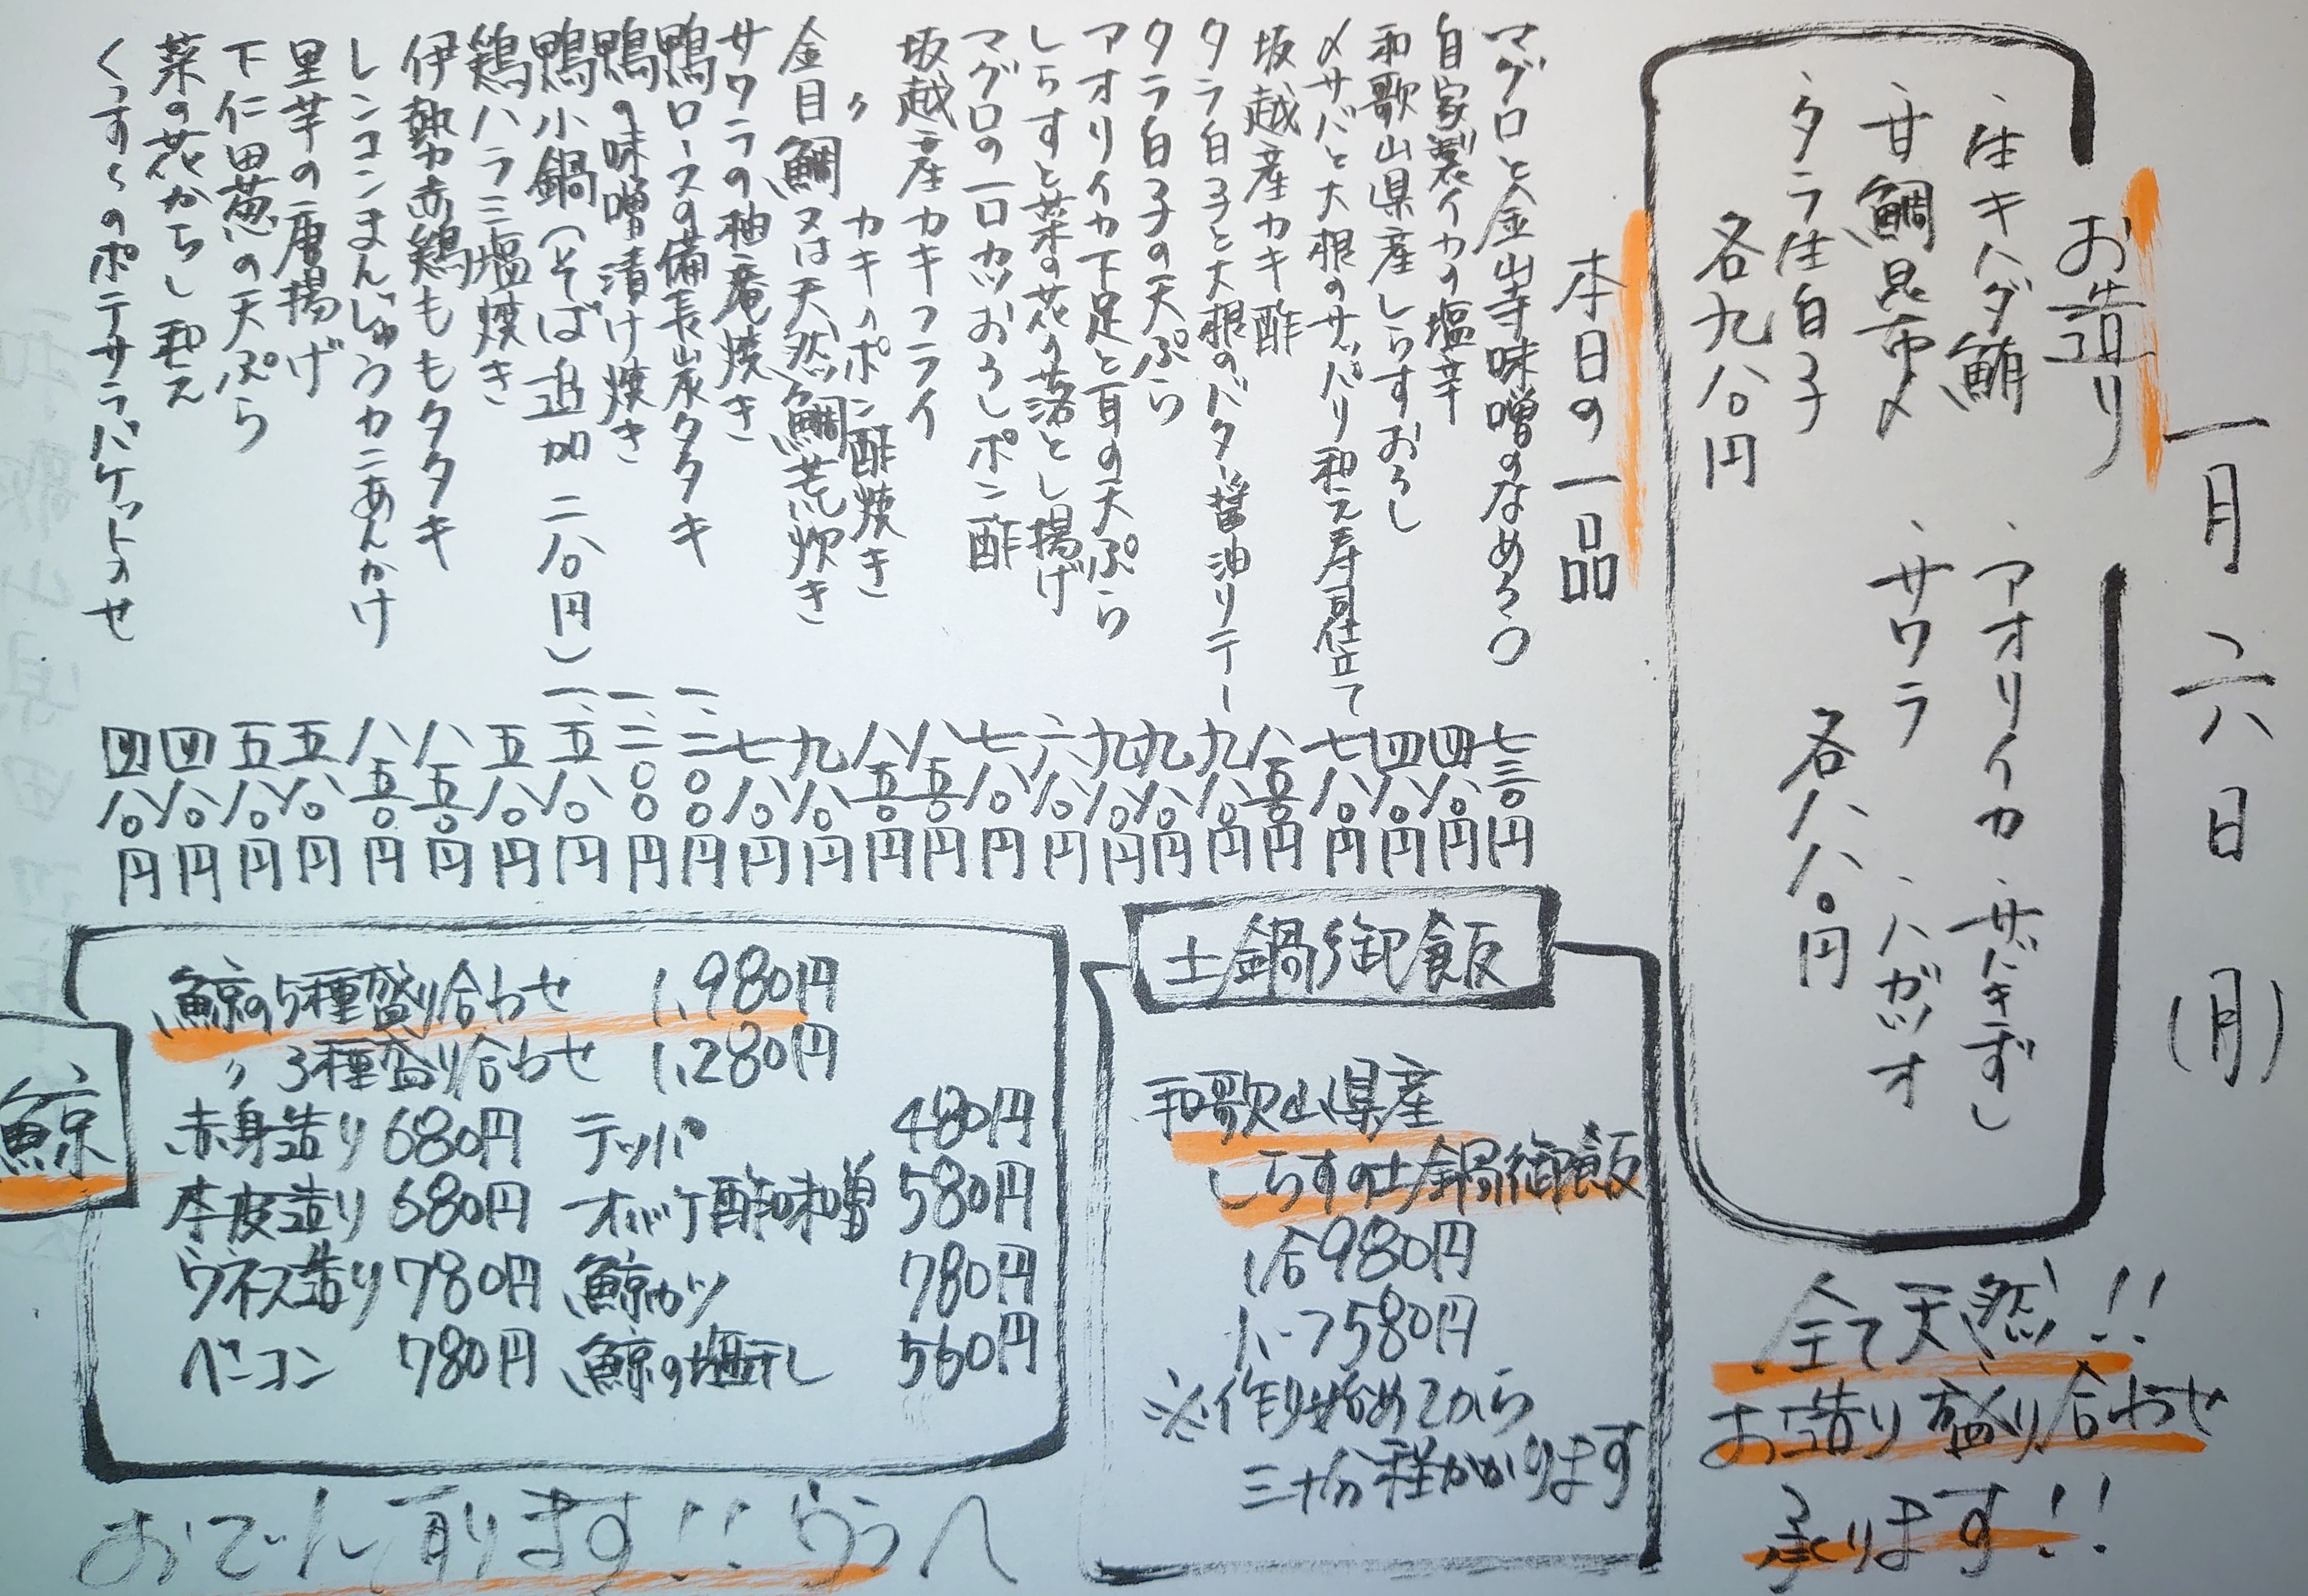 一月六日(月)
お造り
・生キハダ鮪
・甘鯛昆布〆
・タラ生白子
各九八〇円
・アオリイカ
・サワラ
・ハガツオ
各八八〇円
本日の一品
マグロと金山寺味噌のなめろう 七三〇円
自家製イカの塩辛 四八〇円
和歌山県産しらすおろし 四八〇円
〆サバと大根のサッパリ和え寿司仕立て 七八〇円
坂越産カキ酢 八五〇円
タラ白子と大根のバター醤油ソテー 九八〇円
タラ白子の天ぷら 九八〇円
アオリイカ下足と耳の天ぷら 九八〇円
しらすと菜の花の落とし揚げ 六八〇円
マグロの一口カツおろしポン酢 七八〇円
坂越産カキフライ 八五〇円
〃 カキのポン酢焼き 八五〇円
金目鯛又は天然鯛荒炊き 九八〇円
サワラの柚庵焼き 七八〇円
鴨ロースの備長炭タタキ 一、二〇〇円
鴨の味噌漬け焼き 一、二〇〇円
鴨小鍋(そば追加 二八〇円) 一、五八〇円
鶏ハラミ塩焼き 五八〇円
伊勢赤鶏ももタタキ 八五〇円
レンコンまんじゅうカニあんかけ 八五〇円
里芋の唐揚げ 五八〇円
下仁田葱の天ぷら 五八〇円
菜の花からし和え 四八〇円
のポテサラバケットのせ 四八〇円
全て天然!!
お造り盛り合わせ
承ります!!
土鍋御飯
和歌山県産
しらすの土鍋御飯
1合980円
ハーフ580円
※作り始めてから
三十分程かかります
鯨
鯨の5種盛り合わせ 1,980円
〃 3種盛り合わせ 1,280円
赤身造り 680円 テッパ 480円
本皮造り 680円 オバケ酢味噌 580円
ウネス造り 780円 鯨カツ 780円
ベーコン 780円 鯨の塩干し 560円
おでん有ります!! ウラへ